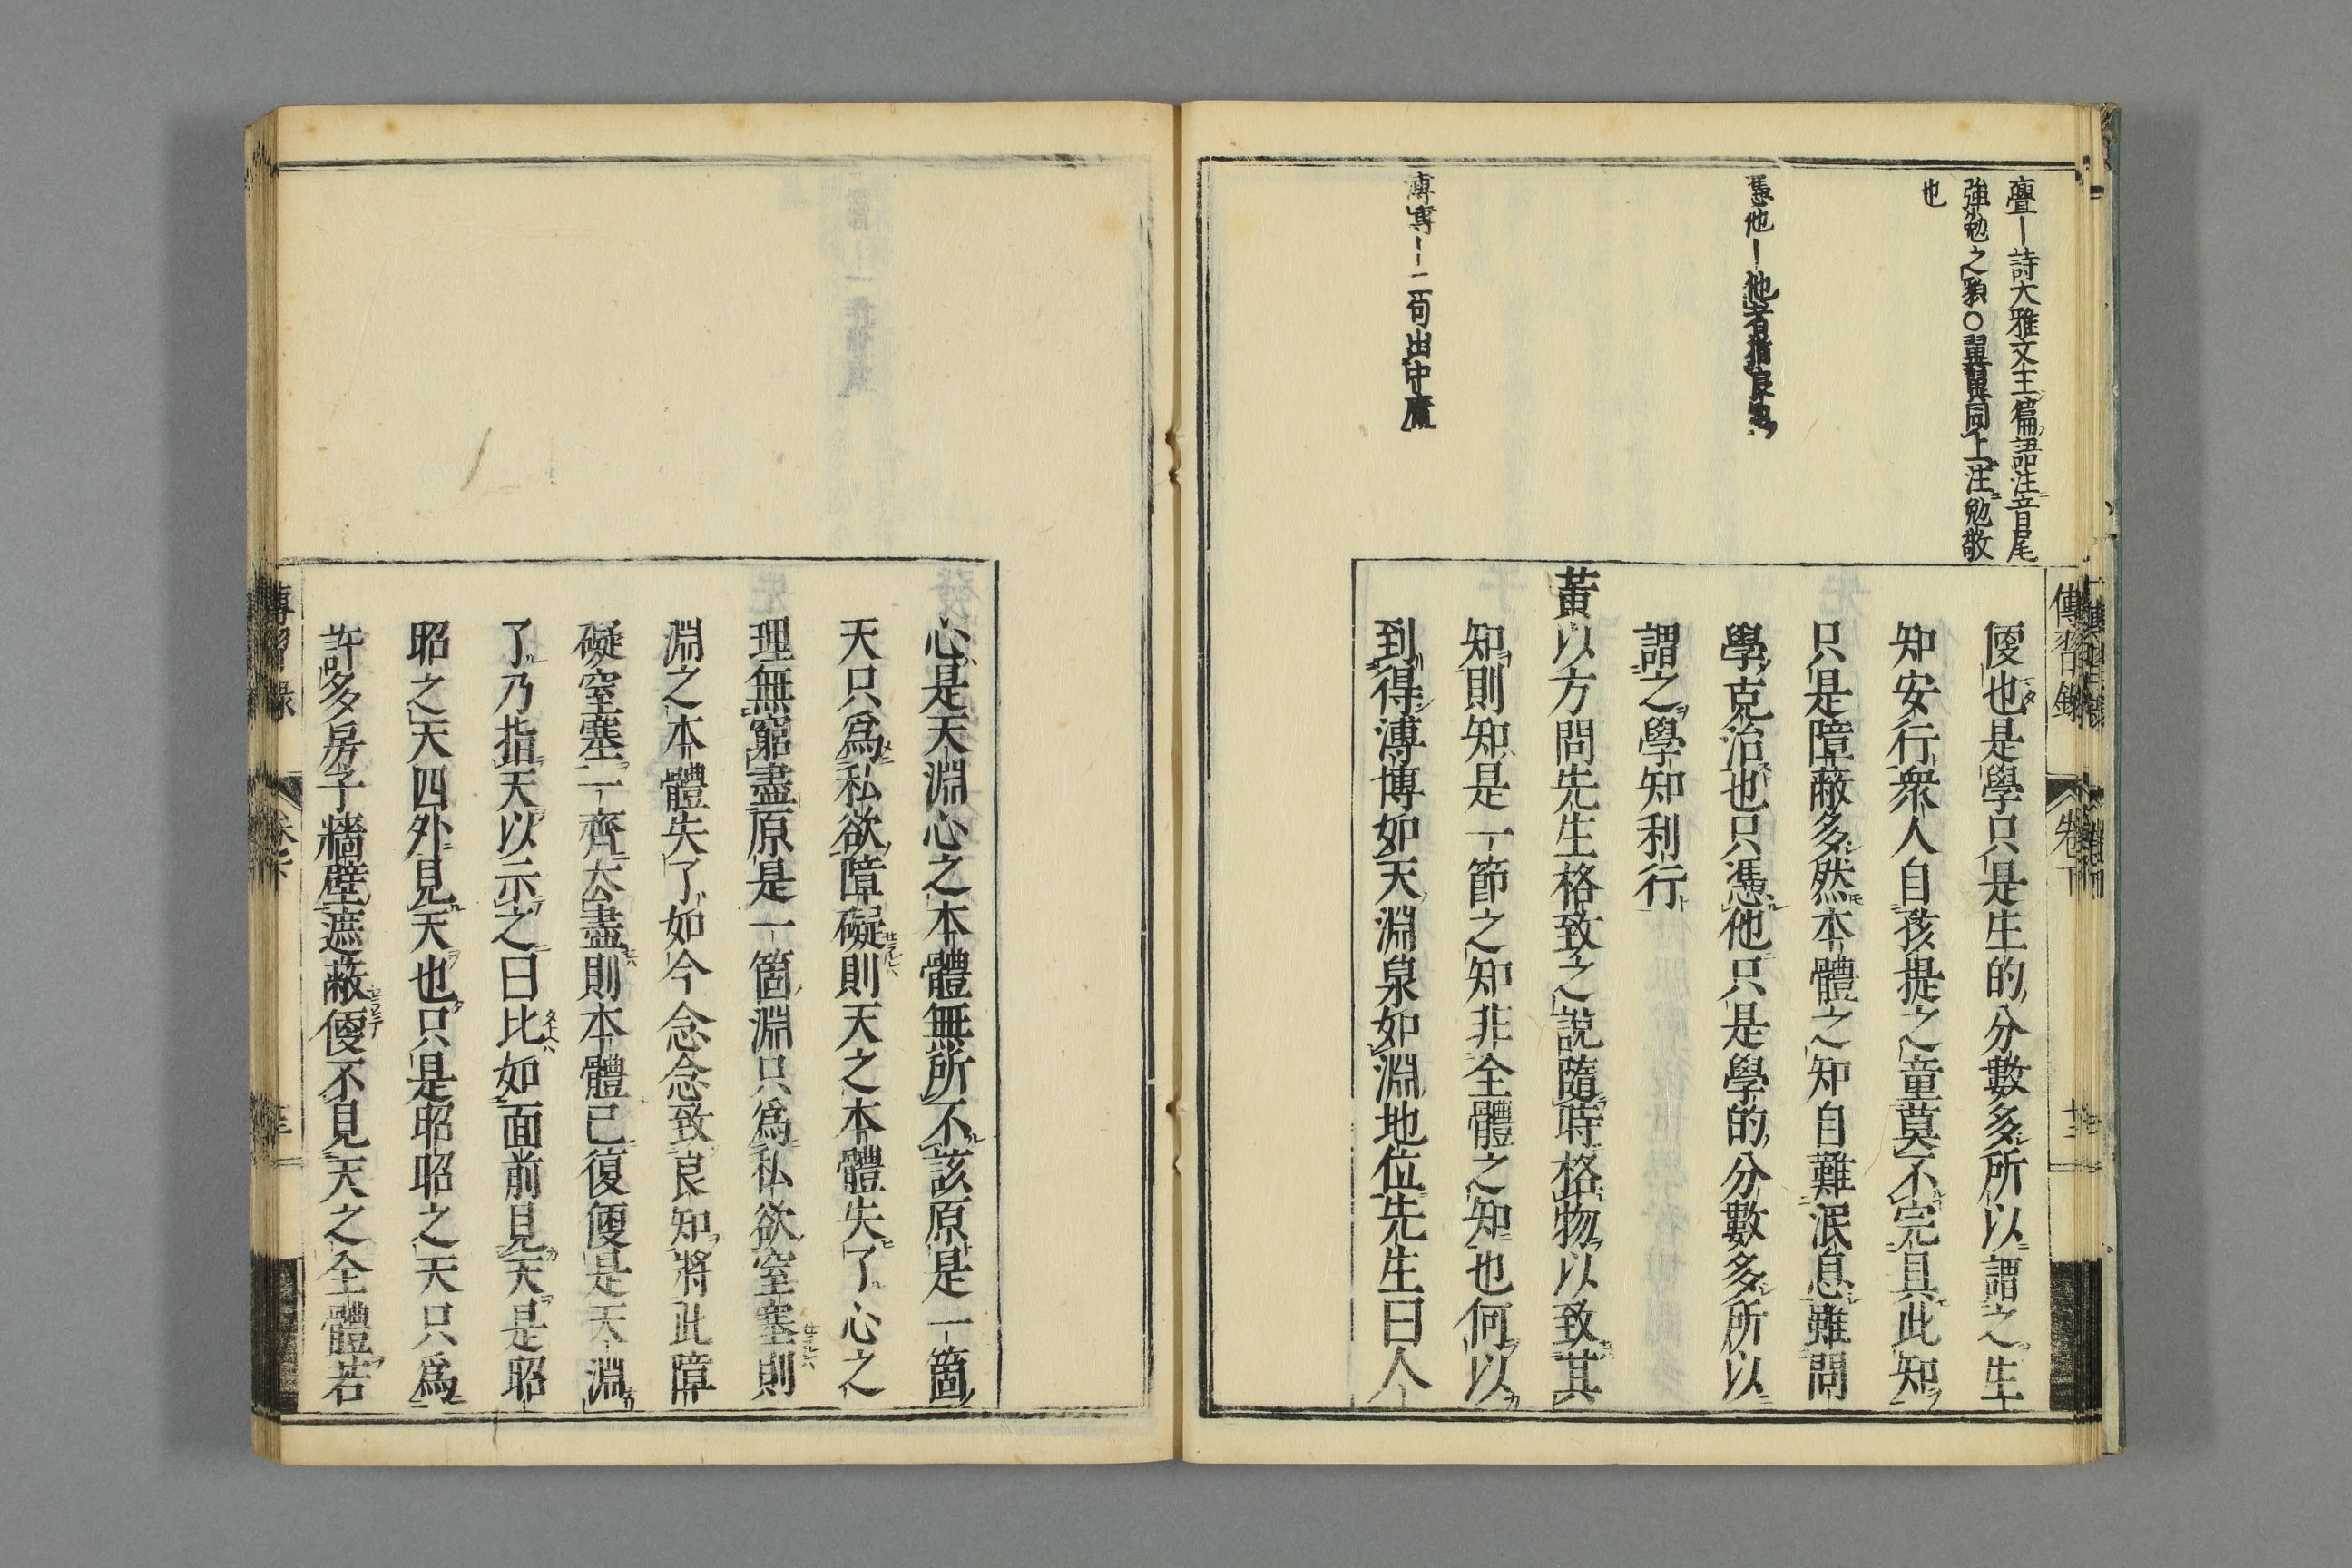 亹｜詩大雅文王篇語注音尾
強勉之貌○翼翼同上注勉敬
也
憑他｜他者指良知
溥專｜｜二句出中庸
傳習錄
卷下
便也是學只是生的分數多所以謂之生
知安行衆人自孩提之童莫不完具此知
只是障蔽多然本體之知自難泯息雖問
學克治也只憑他只是學的分數多所以
謂之學知利行
黃以方問先生格致之說隨時格物以致其
知則知是一節之知非全體之知也何以
到得溥博如天淵泉如淵地位先生曰人
心是天淵心之本體無所不該原是一箇
天只爲私欲障礙則天之本體失了心之
理無窮盡原是一箇淵只爲私欲窒塞則
淵之本體失了如今念念致良知將此障
礙窒塞一齊去盡則本體已復便是天淵
了乃指天以示之曰比如面前見天是昭
昭之天四外見天也只是昭昭之天只爲
許多房子牆壁遮蔽便不見天之全體若
傳習錄